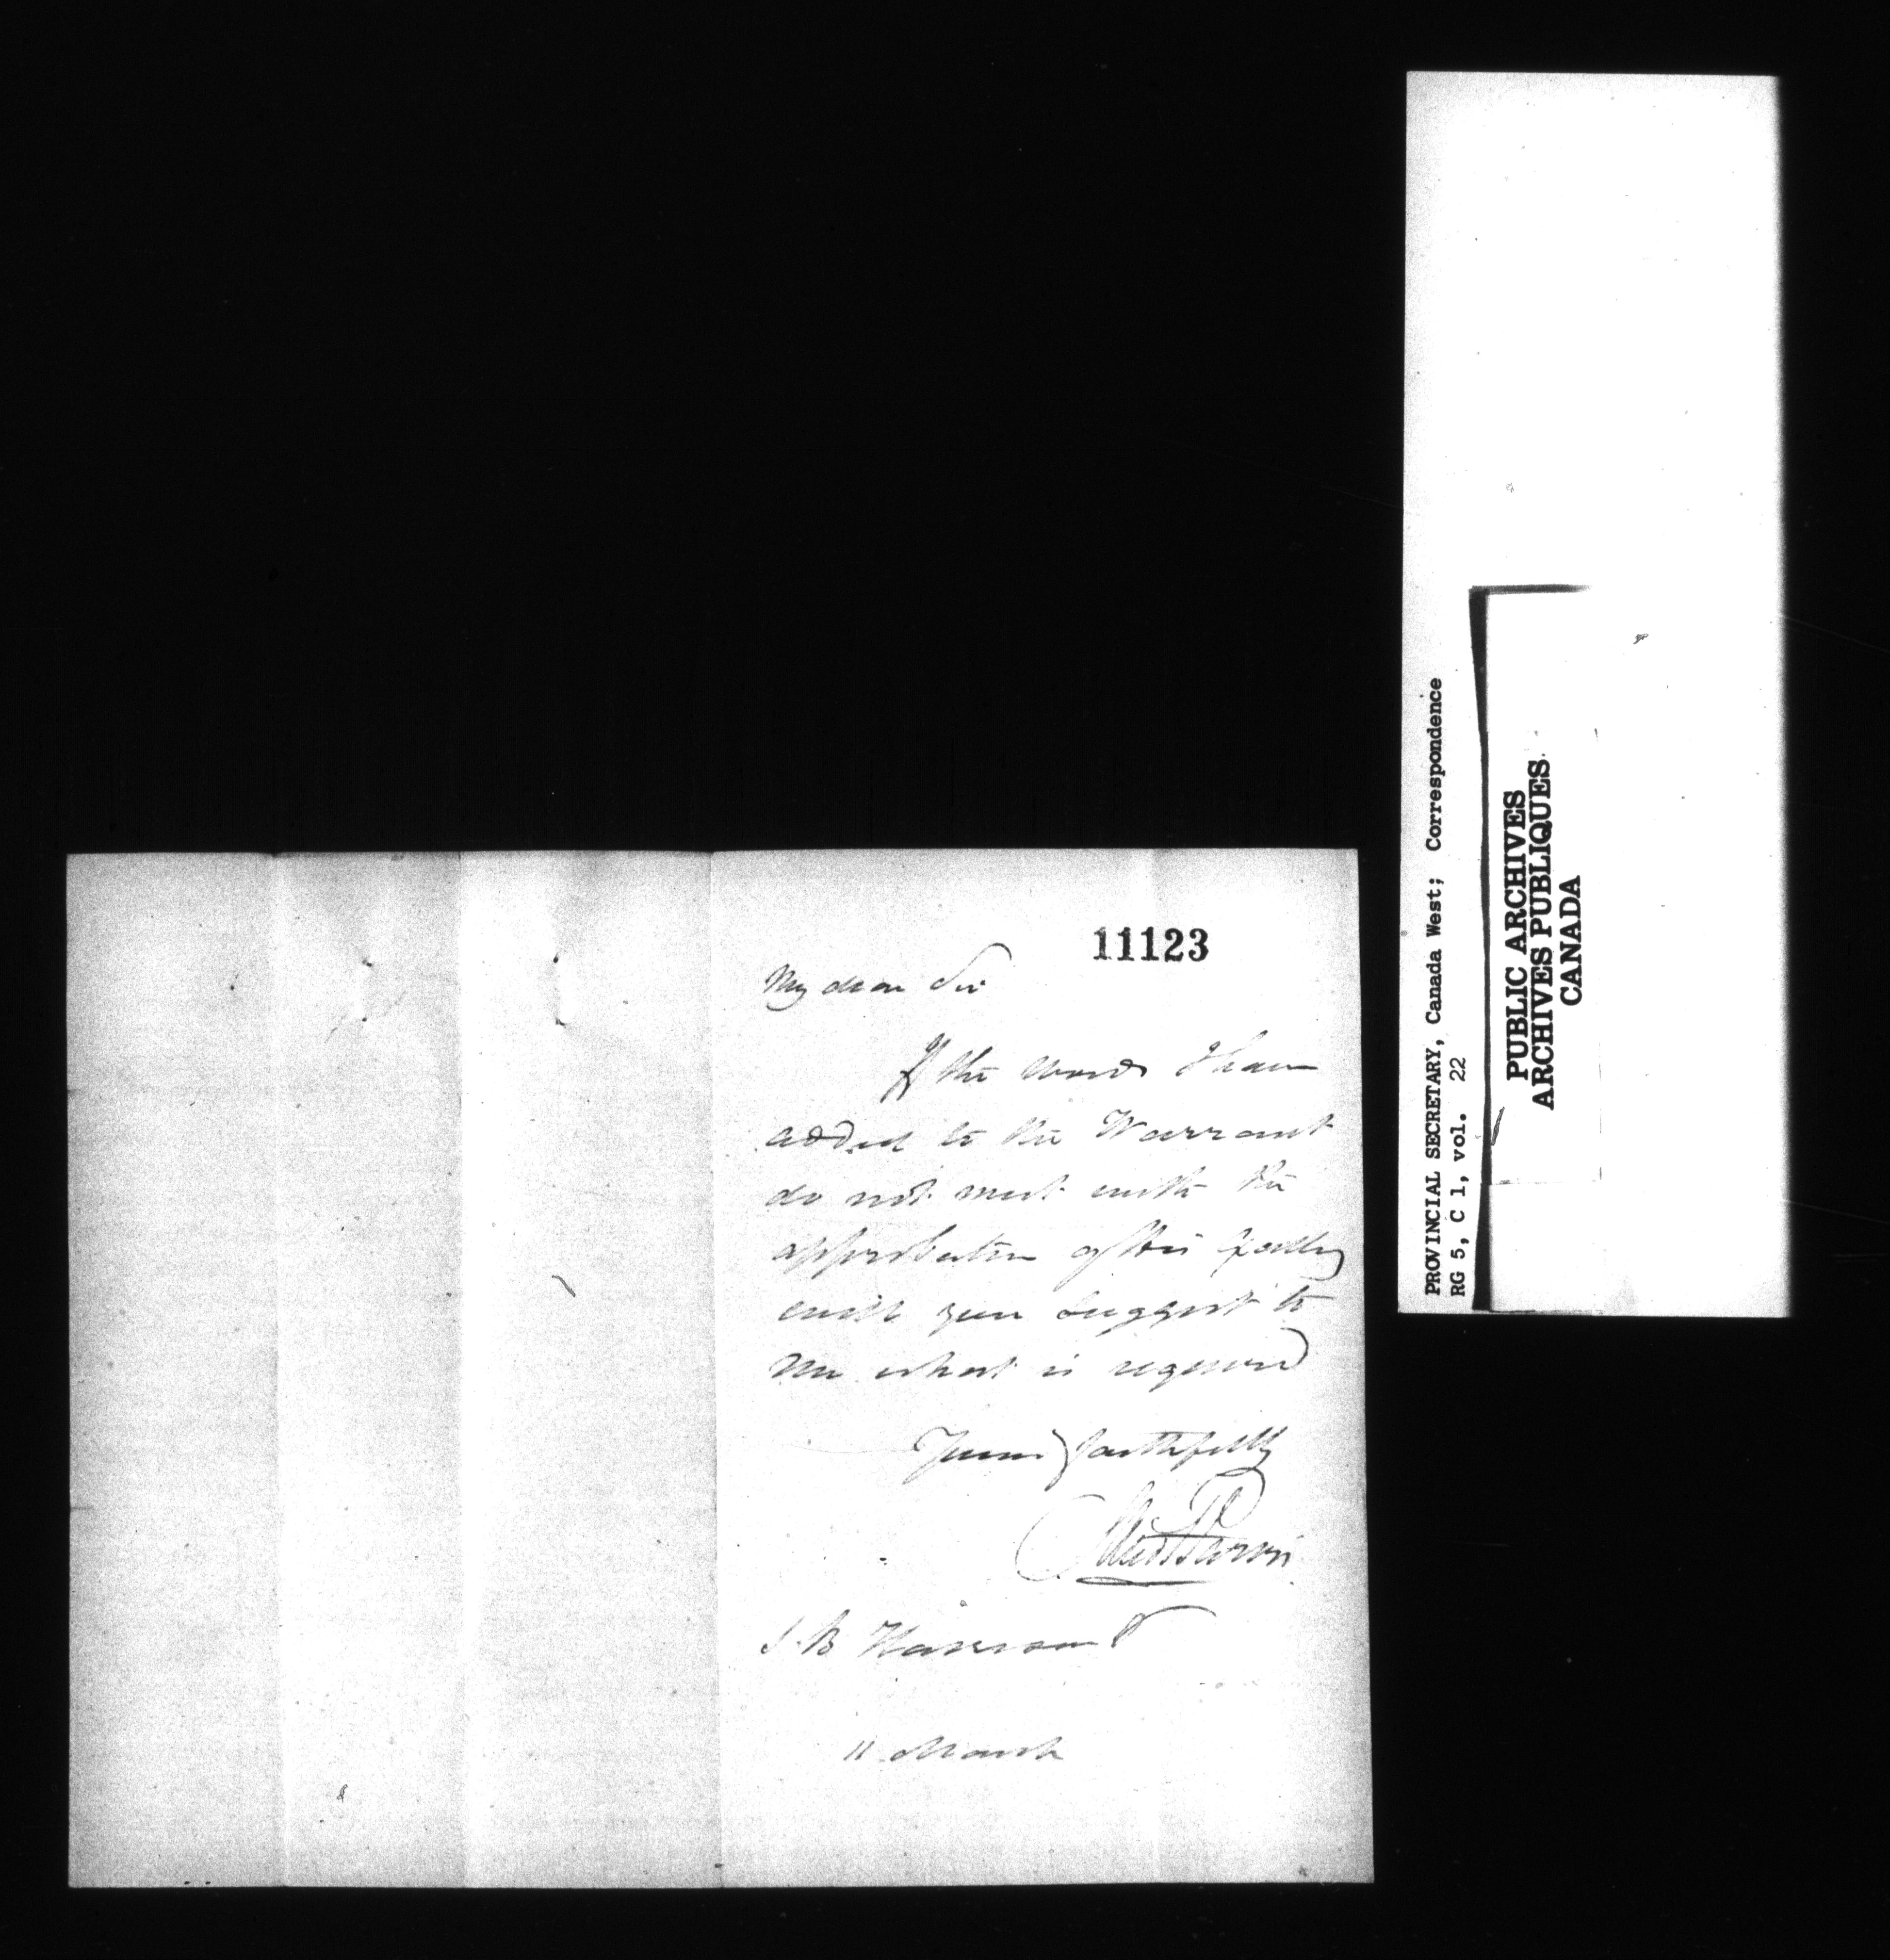 11123
My dear Sir
If the words I have
added to the Warrant
do not meet with the
approbation of His Excellency
will you suggest to
me what is required
Yours faithfully
S. B Harrison
11 March
PROVINCIAL SECRETARY, Canada West; Correspondence
RG 5, C 1, vol. 22
PUBLIC ARCHIVES
ARCHIVES PUBLIQUES
CANADA